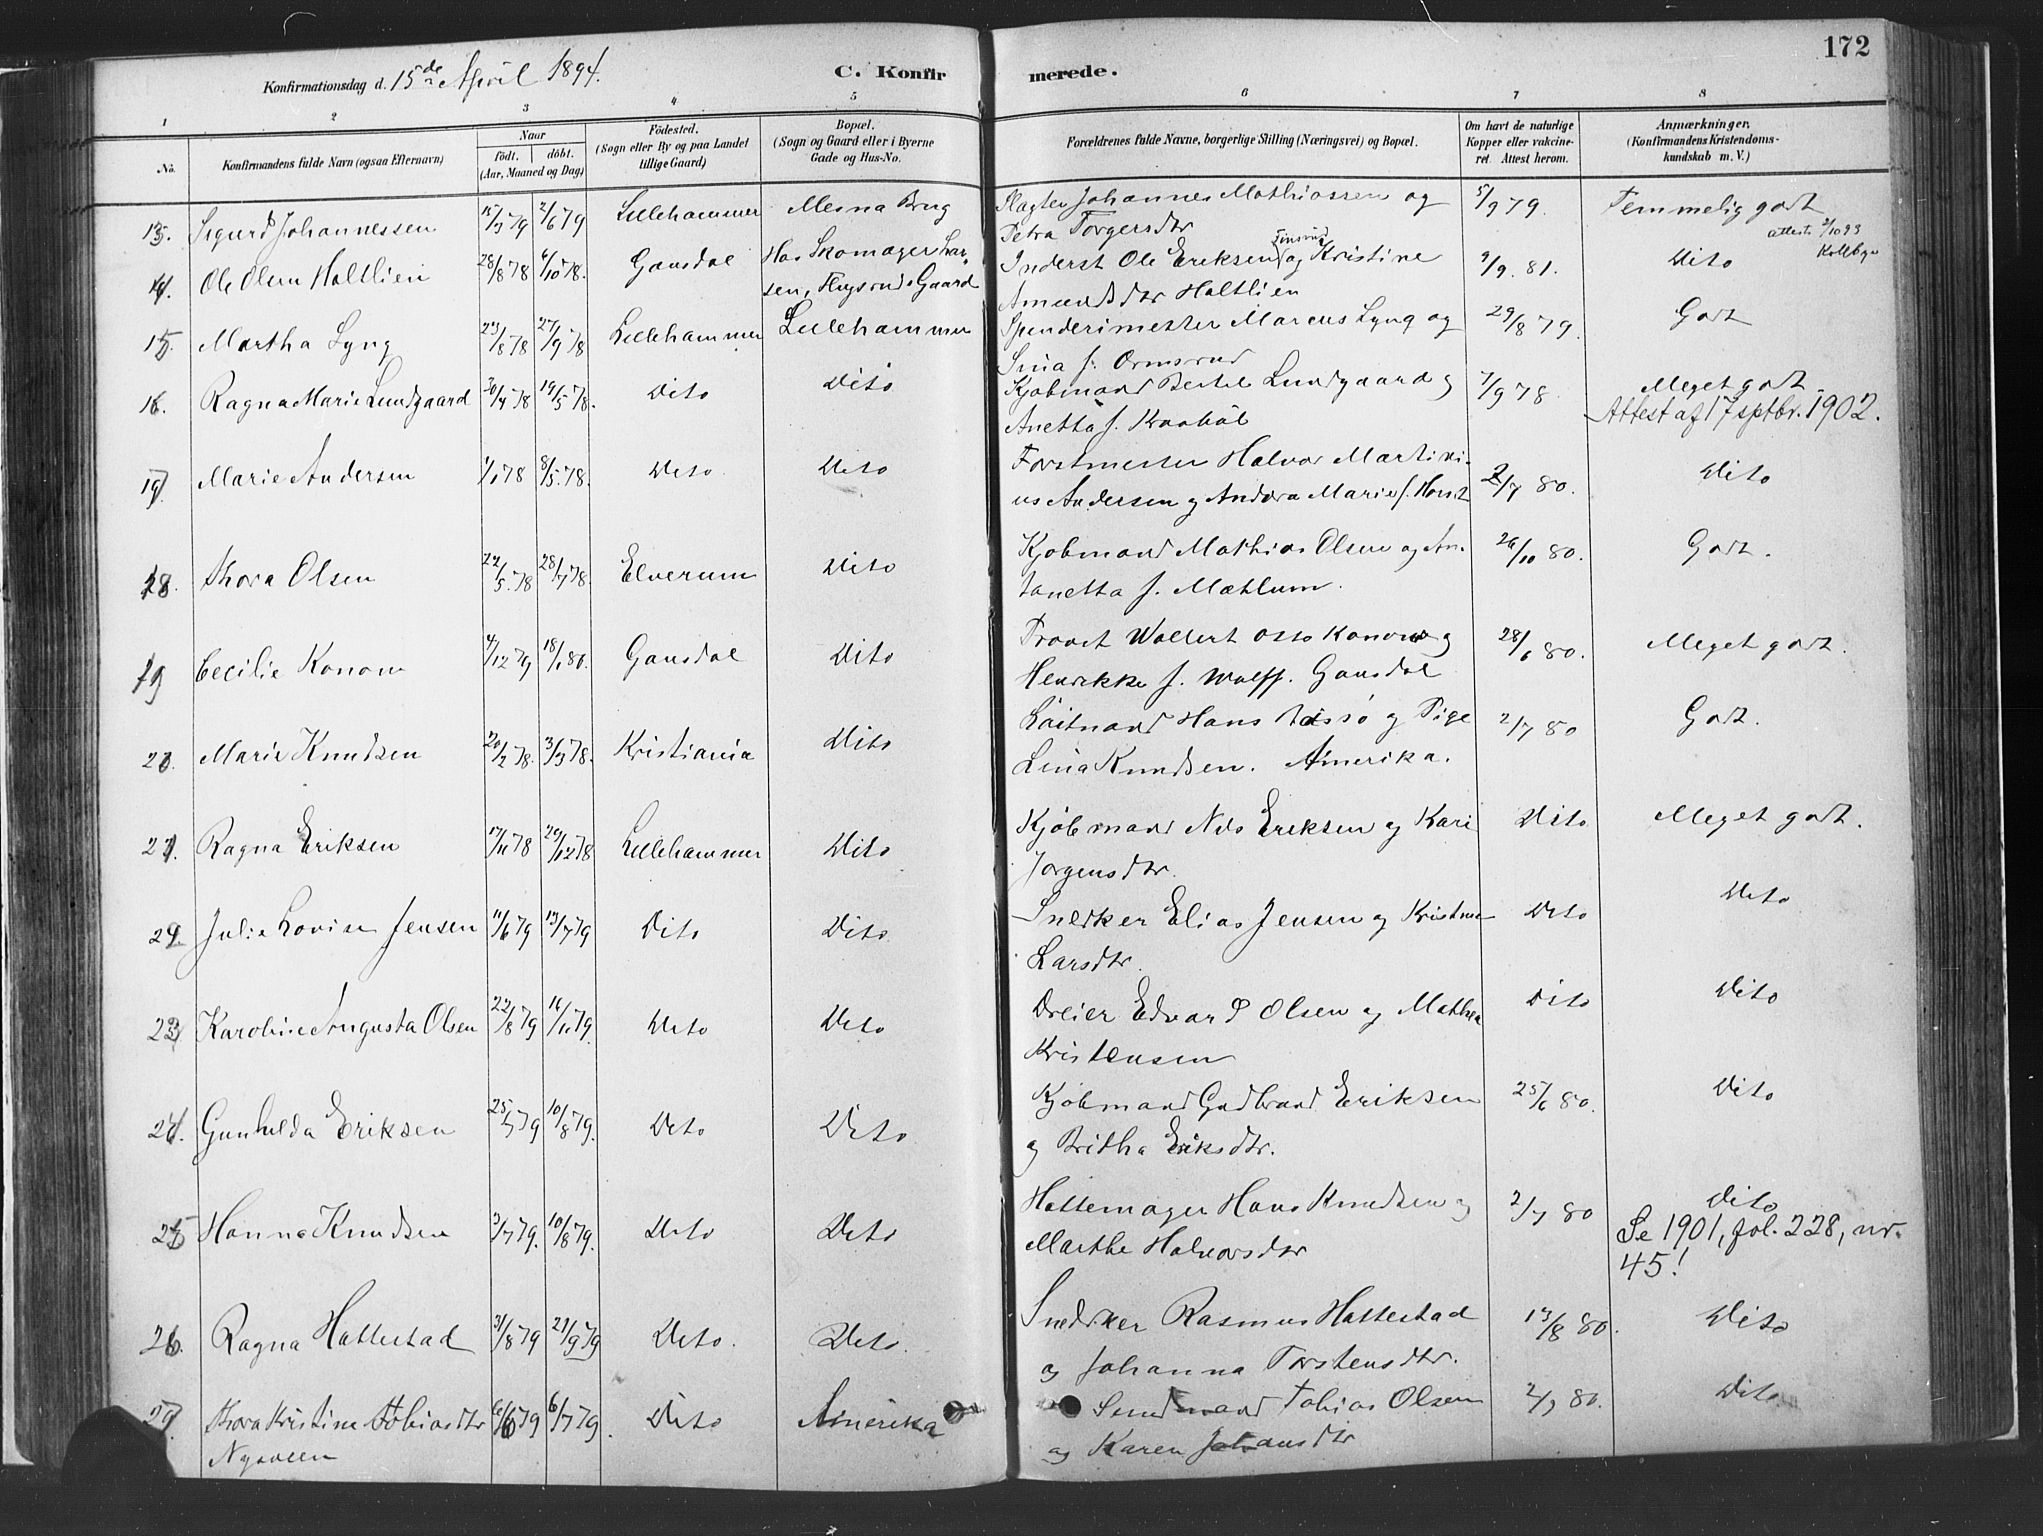 172
Konfirmationsdag d. 15de April 1894.
C. Konfirmerede.
1 2 3 4 5 6 7 8
No.
Konfirmandens fulde Navn (ogsaa Efternavn)
Naar
födt. döbt.
(Aar, Maaned og Dag)
Födested.
(Sogn eller By og paa Landet
tillige Gaard)
Bopæl.
(Sogn og Gaard eller i Byerne
Gade og Hus-No.
Forældrenes fulde Navne, borgerlige Stilling (Næringsvei) og Bopæl.
Om havt de naturlige
Kopper eller vakcine-
ret. Attest herom.
Anmærkninger.
(Konfirmandens Kristendoms-
kundskab m. V.)
13. Sigurd Johannessen 15/3 79 2/6 79 Lillehammer Mesna Brug Slagter Johannes Mathiassen og 5/9 79. Temmelig godt
Petra Torgersdtr attest. 2/10 93
14. Ole Olsen Holtlien 28/8 78 6/10 78. Gausdal Hos Skomager Lar- Inderst Ole Eriksen og Kristine 9/9. 81. Dito
sen, Flugsruds Gaard Amundsdtr Holtlien
15. Martha Lyng 23/8 78 27/9 78 Lillehammer Lillehammer Spenderimester Marcus Lyng og 29/8 79. Godt
Sina f. Ormsrud
16. Ragna Marie Lundgaard 30/4 78 19/5 78. Dito Dito Kjøbmand Bertel Lundgaard og 7/9 78. Meget godt
Anetta f. Kraabøl Attest af 17 septbr. 1902.
17. Marie Andersen 1/1 78 8/5. 78. Dito Dito Forstmester Halvor Martini-
us Andersen og Andrea Marie f. 2/7 80. Dito
18. Thora Olsen 22/5. 78 28/7 78. Elverum Dito Kjøbmand Mathias Olsen og An- 26/10 80. Godt.
tonetta f. Mæhlum.
19 Cecilie Konow 4/12 79 18/1 80. Gausdal Dito Provst Wollert Otto Konow og 28/6 80. Meget godt.
Henrikke f. Wolff. Gausdal
20. Marie Knudsen 20/2 78. 3/3 78. Kristiania Dito Løitnand Hans og Pige 2/7 80 Godt.
Lina Knudsen. Amerika.
21. Ragna Eriksen 17/11 78 29/12 78 Lillehammer Dito Kjøbmand Nils Eriksen og Kari Dito Meget godt.
Jørgensdtr.
22. Julie Lovise Jensen 11/6 79 13/7 79 Dito Dito Snedker Elias Jensen og Kristine Dito Dito
Larsdtr.
23. Karoline Augusta Olsen 22/8 79 16/11 79. Dito Dito Dreier Edvard Olsen og Mathea Dito Dito
Kristensen
24. Gunhilda Eriksen 25/5 79 10/8 79. Dito Dito Kjøbmand Gudbrand Eriksen 25/6 80. Dito
og Britha Eriksdtr.
25 Hanna Knudsen 3/7 79. 10/8 79. Dito Dito Hattemager Hans Knudsen og 2/7 80 Dito
Marthe Halvorsdtr Se 1901, fol. 228, nr.
45!
26. Ragna Hattestad 31/8 79 21/9 79 Dito. Dito. Snedker Rasmus Hattestad 13/8 80. Dito
og Johanna Torstensdtr.
27. Thora Kristine Tobiasdtr 6/6 79 6/7 79. Dito Amerika Tobias Olsen 80. Dito
Nysveen og Karen Johansdtr